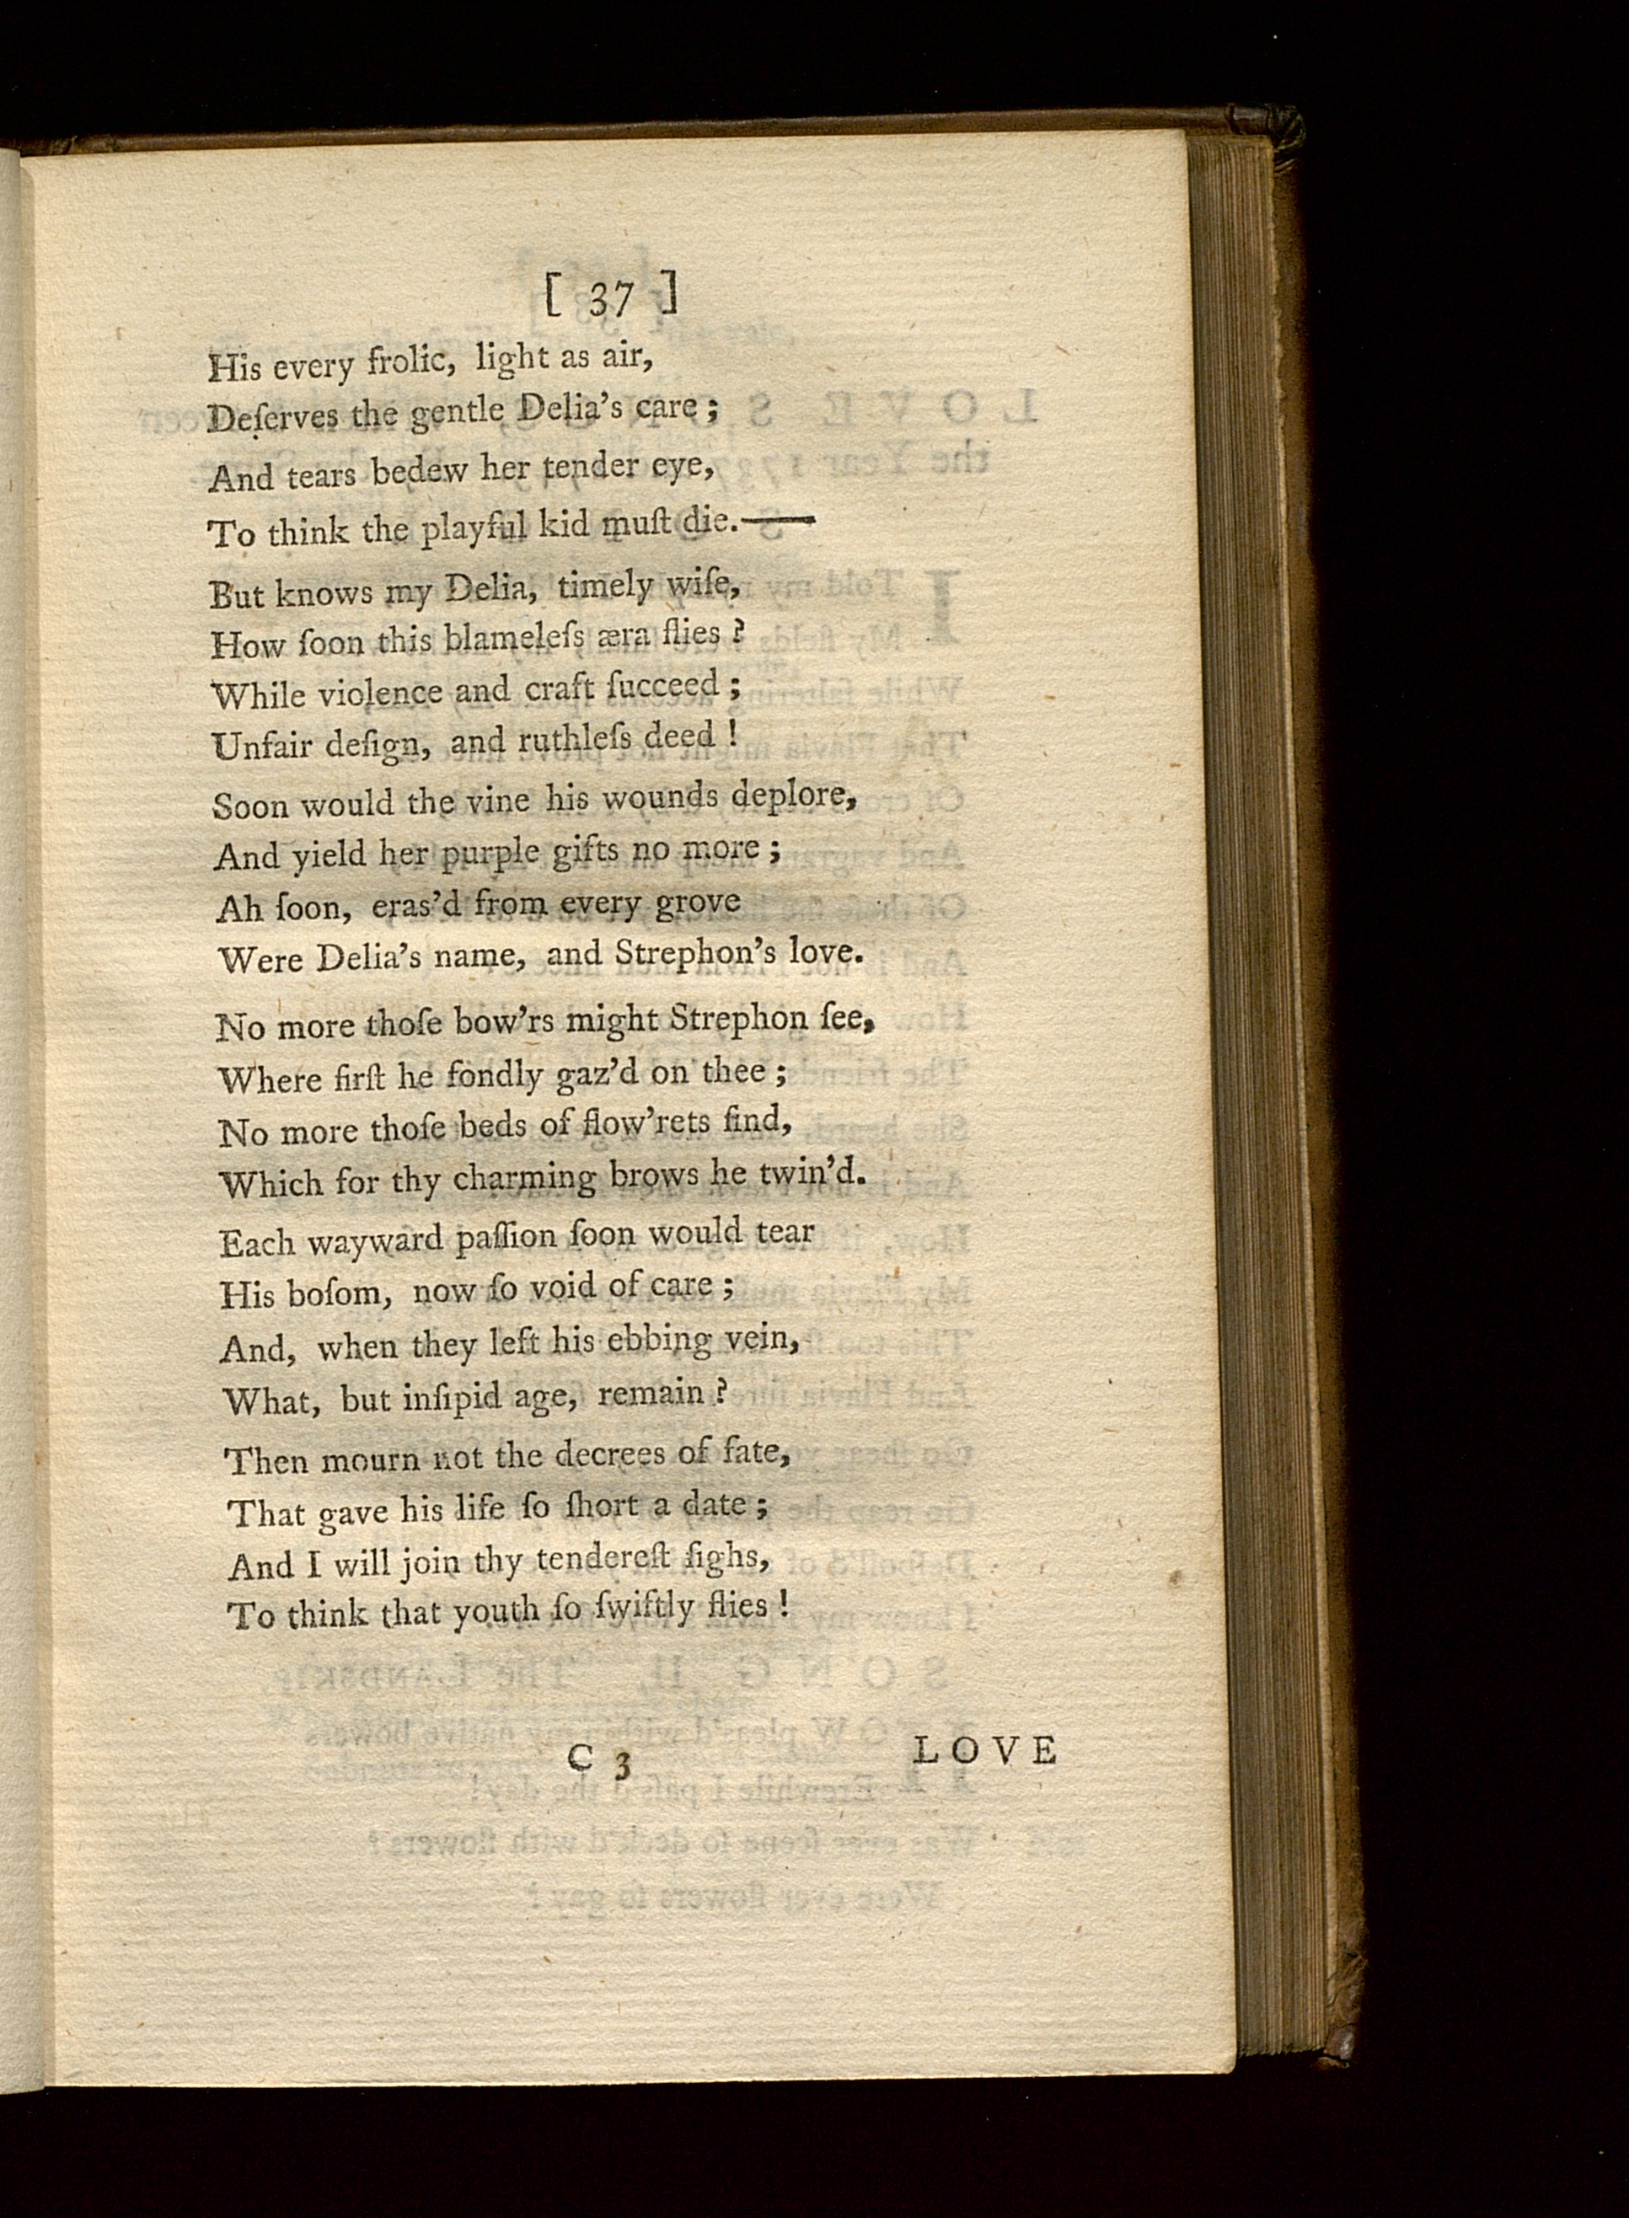 [ 37 ]
His every frolic, light as air,
Deſerves the gentle Delia's care;
And tears bedew her tender eye,
To think the playful kid muſt die.——
But knows my Delia, timely wiſe,
How ſoon this blameleſs æra flies?
While violence and craft ſucceed;
Unfair deſign, and ruthleſs deed!
Soon would the vine his wounds deplore,
And yield her purple gifts no more;
Ah ſoon, eras'd from every grove
Were Delia's name, and Strephon's love.
No more thoſe bow'rs might Strephon ſee,
Where firſt he fondly gaz'd on thee;
No more thoſe beds of flow'rets find,
Which for thy charming brows he twin'd.
Each wayward paſſion ſoon would tear
His boſom, now ſo void of care;
And, when they left his ebbing vein,
What, but inſipid age, remain?
Then mourn not the decrees of fate,
That gave his life ſo ſhort a date;
And I will join thy tendereſt ſighs,
To think that youth ſo ſwiftly flies!
C 3 LOVE